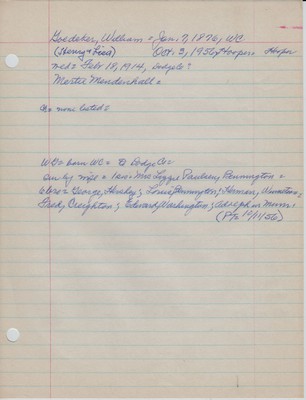 Goedeker, William = Jan. 7, 1876, WC
(Henry & Lisa) Oct. 3, 1956, Hooper = Hooper
wed = Feb 18, 1914, Dodge Co?
Mertie Mendenhall =
Ch = none listed =
WG = born WC = to Dodge Co =
Surv by wife = 1 sis = Mrs. Lizzie Paulsen, Pennington =
6 bro = George, Hershey; Louis, Pennington; Herman, Winston =
Fred, Creighton; Edward, Washington; & Adolph in Minn =
(PTr 10/11/56)